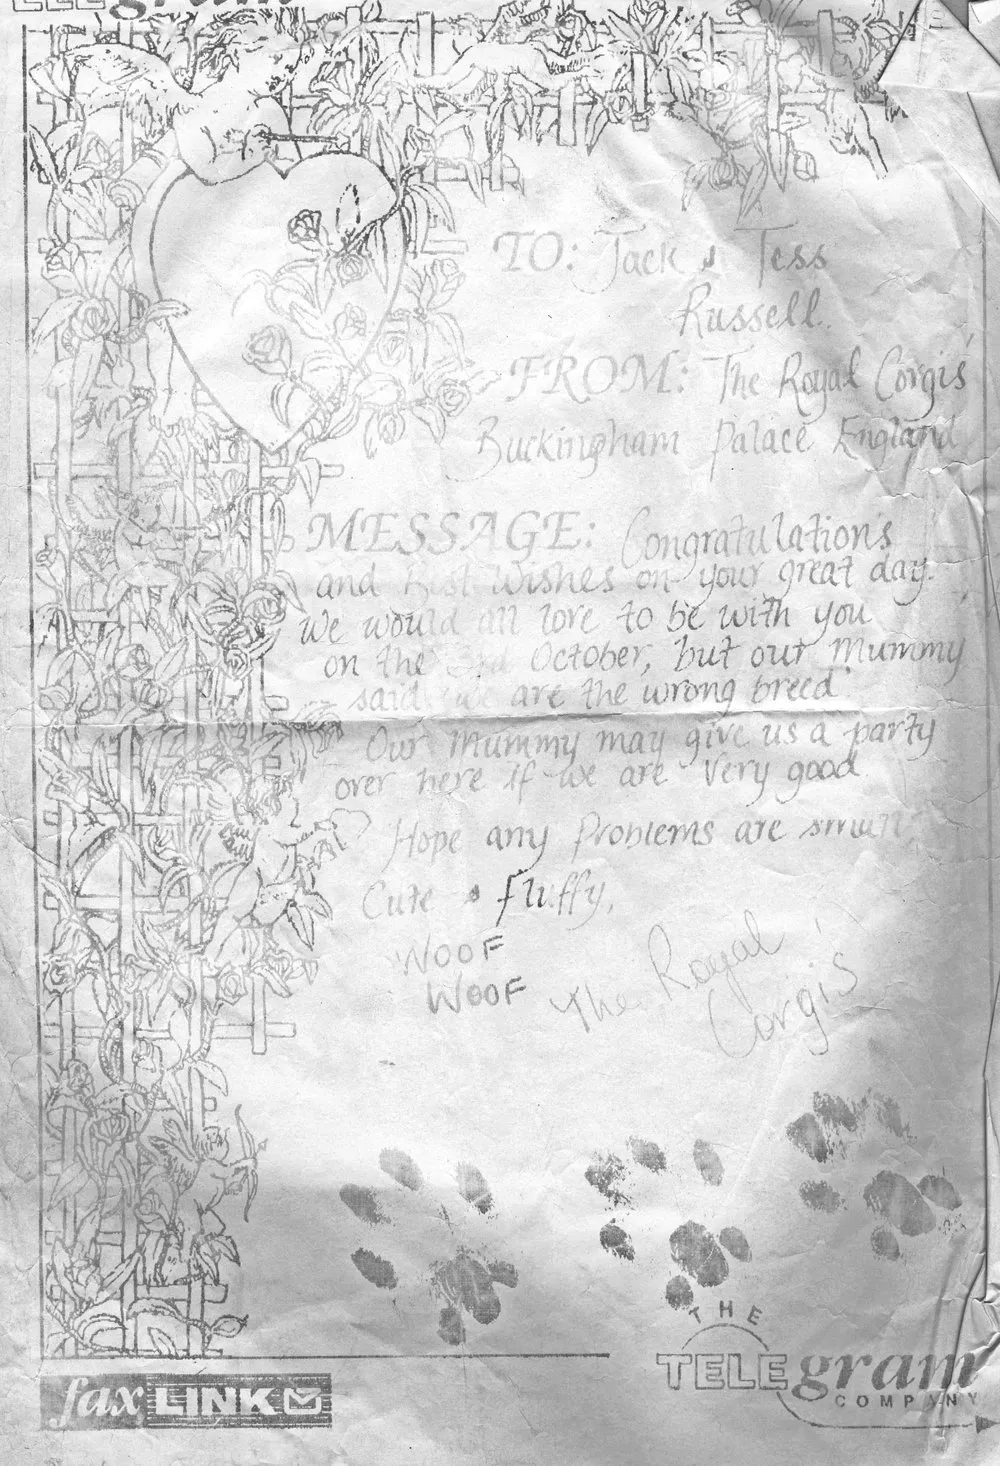 TELEgram
TO: Jack & Tess
Russell.
FROM: The Royal Corgis'
Buckingham Palace England
MESSAGE: Congratulation's
and Best Wishes on your great day.
We would all love to be with you
on the 3rd October, but our Mummy
said we are the wrong breed.
Our Mummy may give us a party
over here if we are very good.
Hope any Problems are small,
Cute & Fluffy.
WOOF
WOOF
The Royal
Corgis
THE
TELEgram
COMPANY
fax LINK